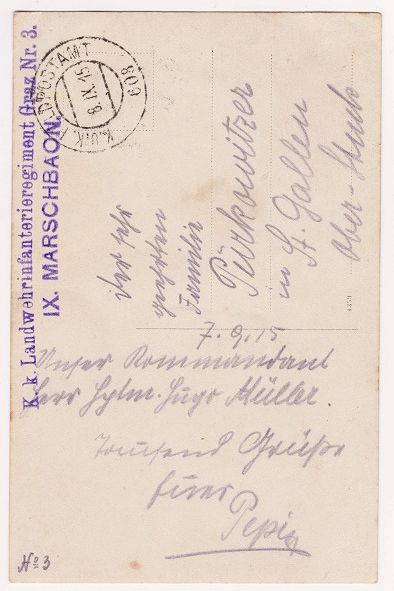 K.k. Landwehrinfanterieregiment Graz Nr. 3.
IX. MARSCHBAON.
K.u.K. FELDPOSTAMT
8. IX. 15
608
Der sehr
geehrten
Familie
Pürkowitzer
in St. Gallen
Ober-Steuk
4359
7.9.15
Unser Kommandant
Herr Hptm. Hugo Müller.
Tausend Grüße
Euer
Pepi
No 3